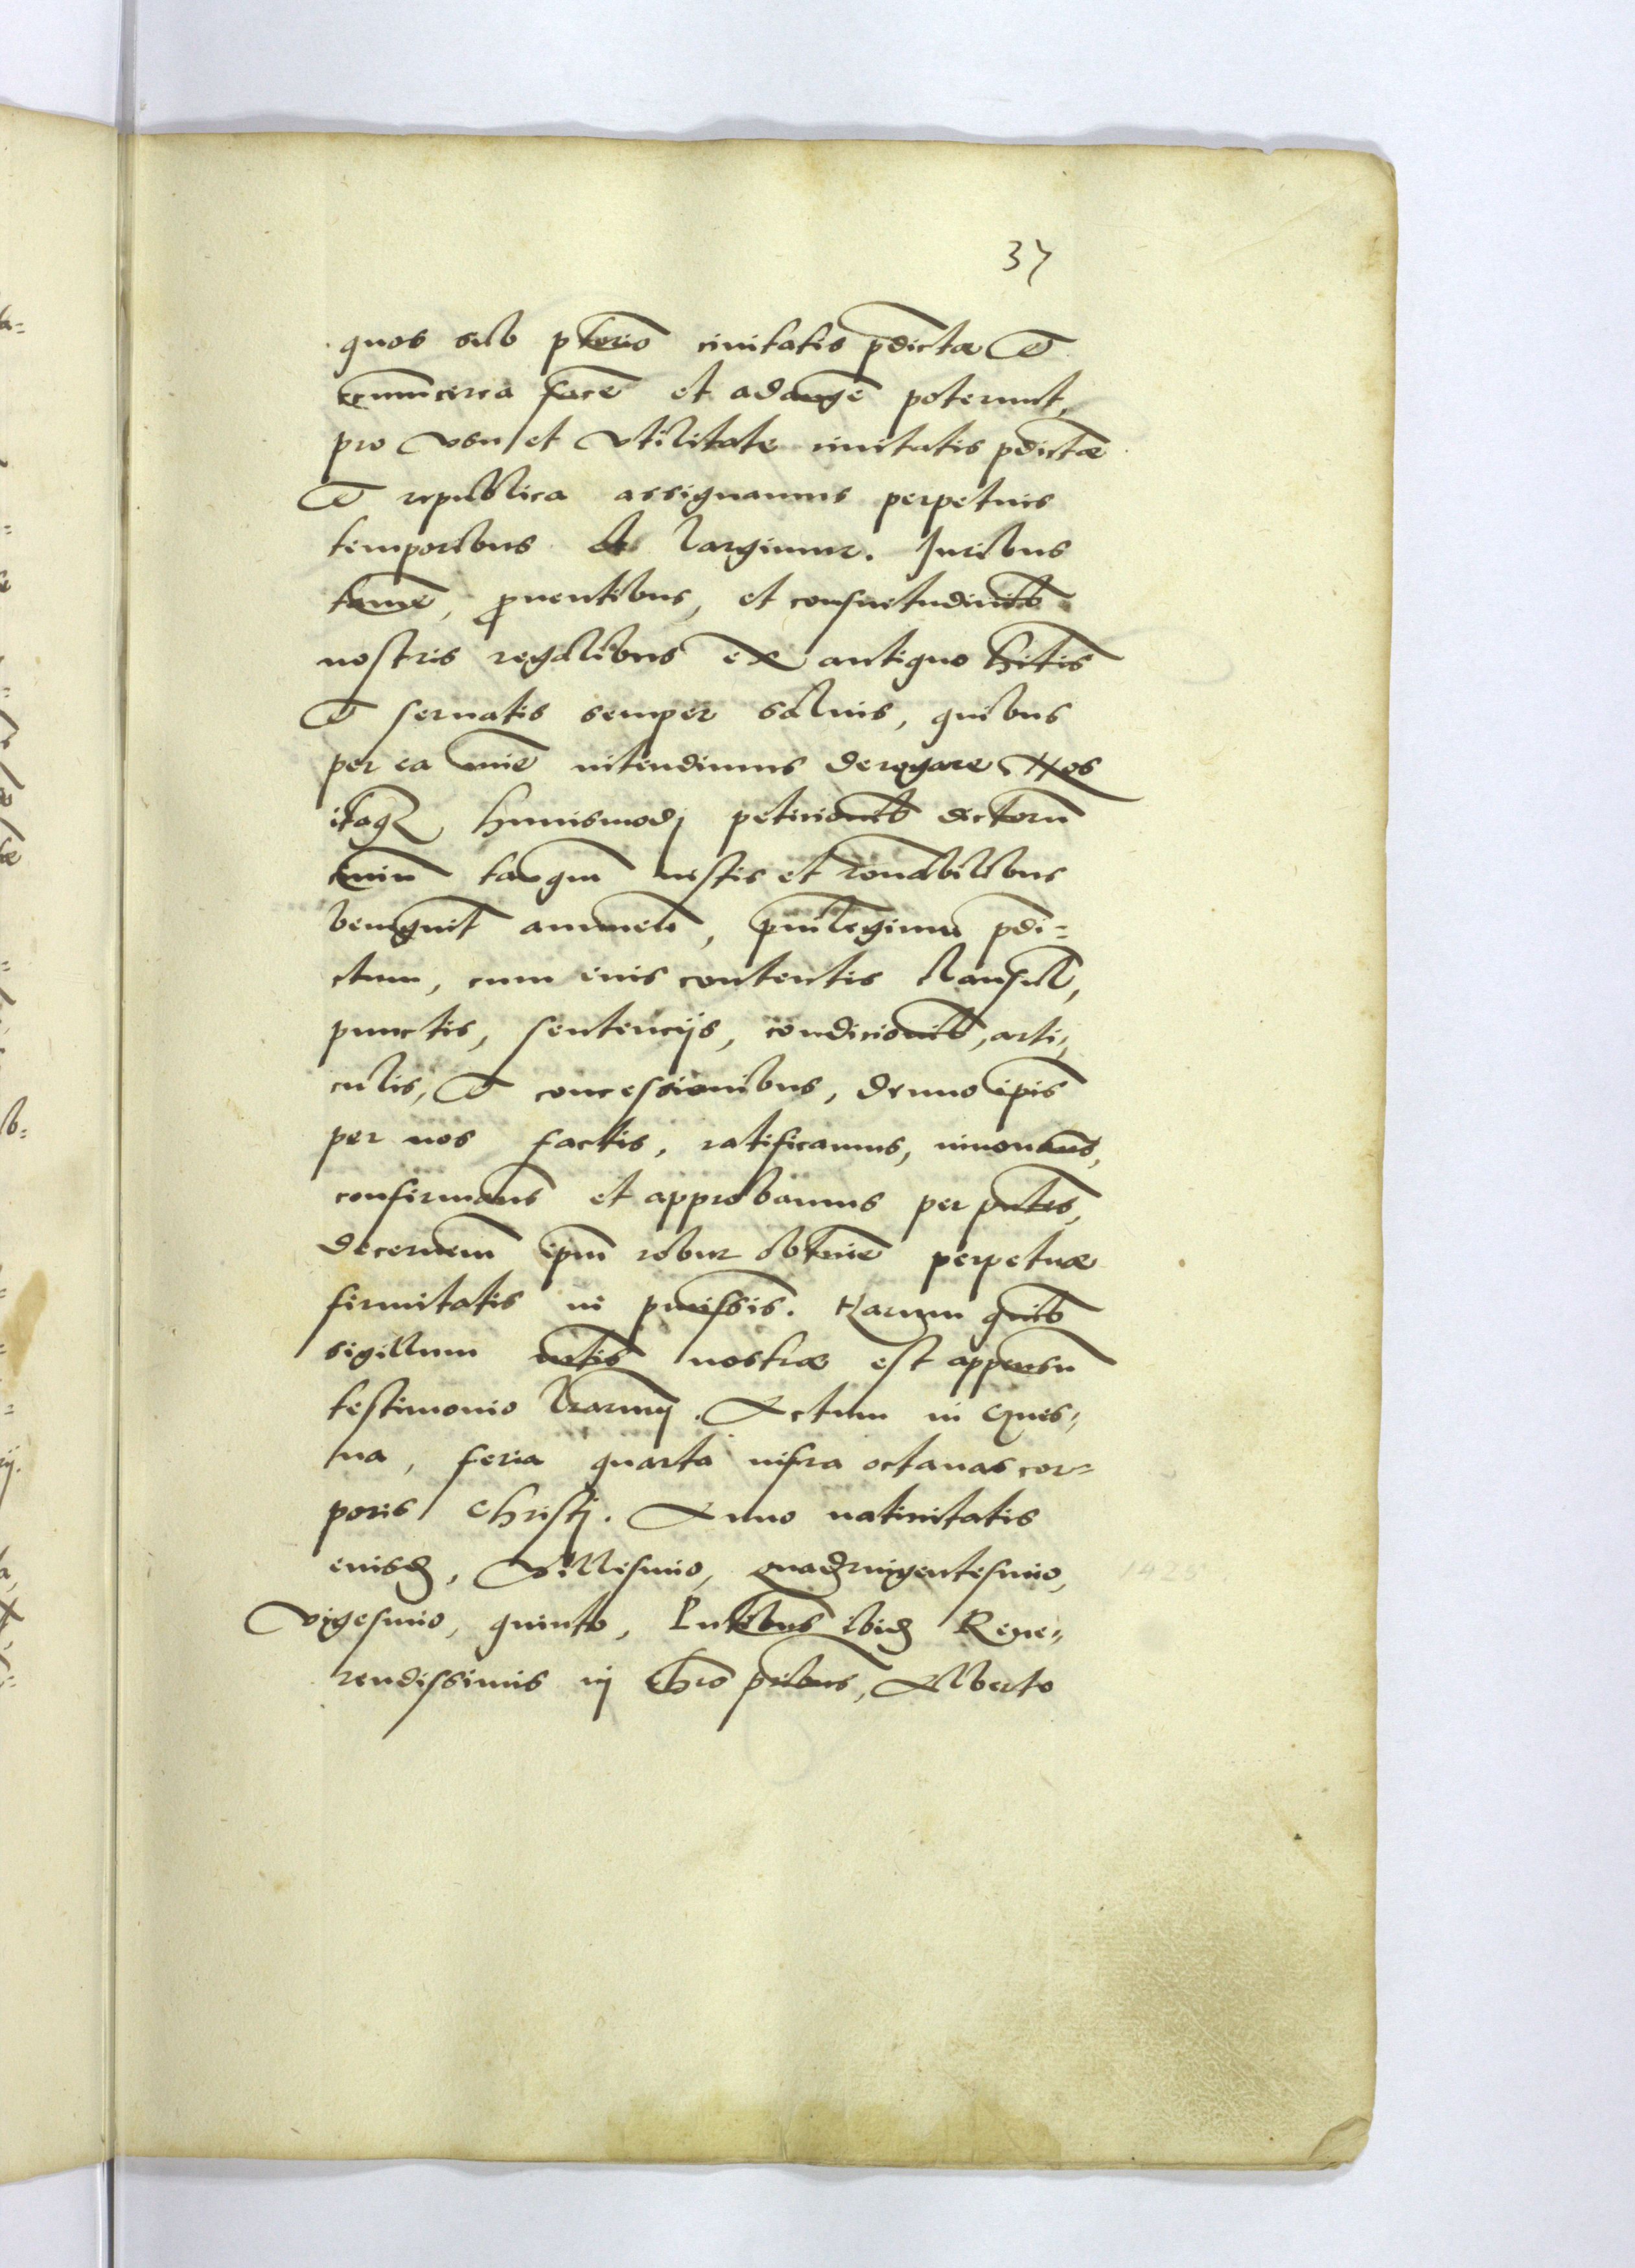 37
quos sub ptorio ciuitatis pdictæ et
cumcirca face et adauge poterunt,
pro vsu et vtilitate ciuitatis pdictæ
et republica assignamus perpetuis
temporibus et largimur. Juribus
tame, prouentibus, et consuetudinib
nostris regalibus ex antiquo hitis
et seruatis semper saluis, quibus
per ea mie intendimus derogare. Nos
itaqz huiusmodj peticionib dictorum
ciuiu tanqm iustis et ronabilibus
benignit annuen, priuilegium pdi=
ctum, cum eius contentis clausul,
punctis, sentencijs, condicionib, arti=
culis, et concessionibus, denuo ipis
per nos factis, ratificamus, innouams,
confirmams et approbamus per pntes,
decernem ipm robur obtinie perpetuæ
firmitatis in pmissis. Harum quib
sigillum mtis nostræ est appensu
testimonio lrarum. Actum in Ques=
na, feria quarta infra octauas cor=
poris Christj. Anno natiuitatis
eiusd, Millesimo, quadringentesimo,
vigesimo, quinto, Pntibus ibid Reue=
rendissimis in Chro pribus, Alberto
1425